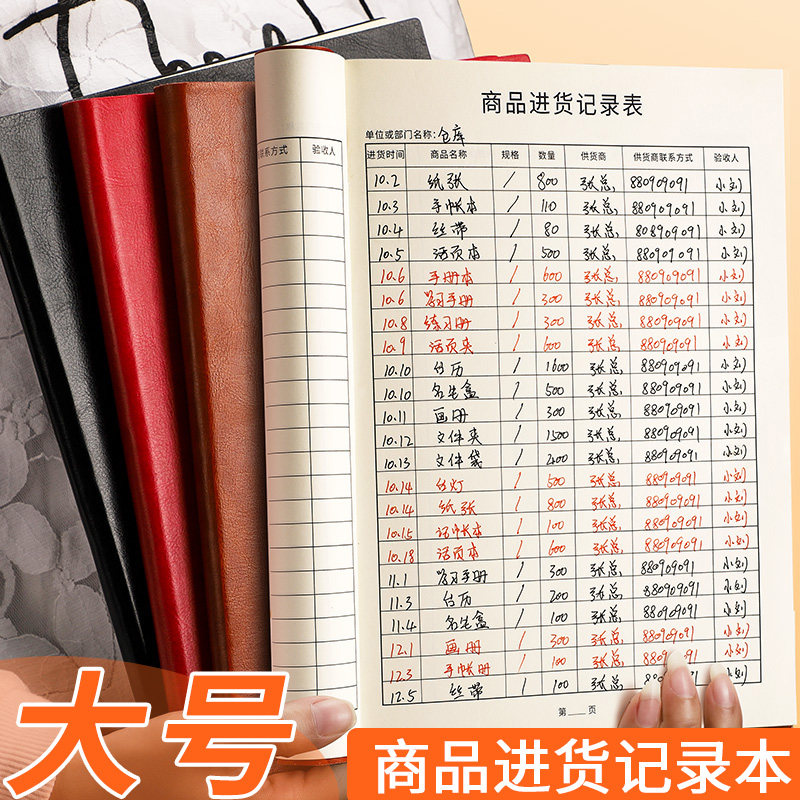 商品进货记录表
单位或部门名称: 仓库
联系方式 验收人
进货时间 商品名称 规格 数量 供货商 供货商联系方式 验收人
10.2 纸张 / 800 张总 880909091 小刘
10.3 手帐本 / 110 张总 880909091 小刘
10.4 丝带 / 80 张总 808909091 小刘
10.5 活页本 / 500 张总 880909091 小刘
10.6 手册本 / 600 张总 880909091 小刘
10.6 学习手册 / 300 张总 880909091 小刘
10.8 练习册 / 300 张总 880909091 小刘
10.9 活页夹 / 600 张总 880909091 小刘
10.10 台历 / 1600 张总 880909091 小刘
10.10 名生盒 / 500 张总 880909091 小刘
10.11 画册 / 300 张总 880909091 小刘
10.12 文件夹 / 1500 张总 880909091 小刘
10.13 文件袋 / 2600 张总 880909091 小刘
10.14 台灯 / 500 张总 880909091 小刘
10.14 纸张 / 800 张总 880909091 小刘
10.15 手帐本 / 100 张总 880909091 小刘
10.18 活页本 / 600 张总 880909091 小刘
11.1 学习手册 / 300 张总 880909091 小刘
11.3 台历 / 200 张总 880909091 小刘
11.4 名生盒 / 100 张总 880909091 小刘
12.1 画册 / 300 张总 880909091 小刘
12.3 手帐册 / 100 张总 880909091 小刘
12.5 丝带 / 100 张总 880909091 小刘
第____页
大号
商品进货记录本